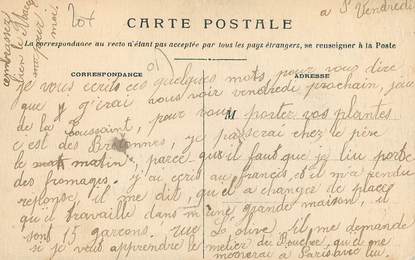 CARTE POSTALE
La correspondance au recto n'étant pas acceptée par tous les pays étrangers, se renseigner à la Poste
CORRESPONDANCE
ADRESSE
à St Vendredi
20f
embrassez
bien le
pour
moi
je vous écris ces quelques mots, pour vous dire
que j'irai vous voir vendredi prochain, jour
de la Toussaint, pour vous M portez vos plantes
c'est des Bretonnes, je passerai chez le père
le matin, parce qu'il faut que je lui porte
des fromages. j'ai écris au françois, et il m'a rendu
réponse, il me dit, qu'il a changé de place
qu'il travaille dans une grande maison, il
sont 15 garçons. rue L'olive, il me demande
si je veux apprendre le metier de Boucher, qu'il me
menerai à Paris avec lui.